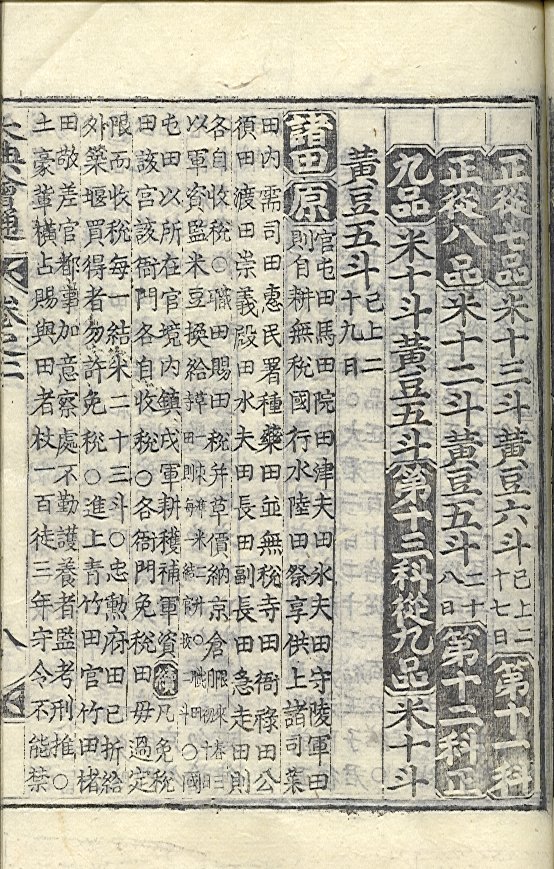 正從七品米十三斗黃豆六斗已上二十七日第十一科
正從八品米十二斗黃豆五斗二十八日第十二科正
九品米十斗黃豆五斗第十三科從九品米十斗
黃豆五斗已上二十九日
諸田原官屯田馬田院田津夫田氷夫田守陵軍田
則自耕無稅國行水陸田祭享供上諸司菜
田內需司田惠民署種藥田並無稅寺田衙祿田公
須田渡田崇義殿田水夫田長田副長田急走田則
各自收稅○職田賜田稅并草價納京倉
以軍資監米豆換給
屯田以所在官境內鎭戍軍耕穫補軍資續凡免稅
田該宮該衙門各自收稅○各衙門免稅田毋過定
限而收稅每一結米二十三斗○忠勳府田已折給
外築堰買得者勿許免稅○進上靑竹田官竹田楮
田敬差官都事加意察處不勤護養者監考刑推○
土豪輩橫占賜與田者杖一百徒三年守令不能禁
大典會通 卷之二 八